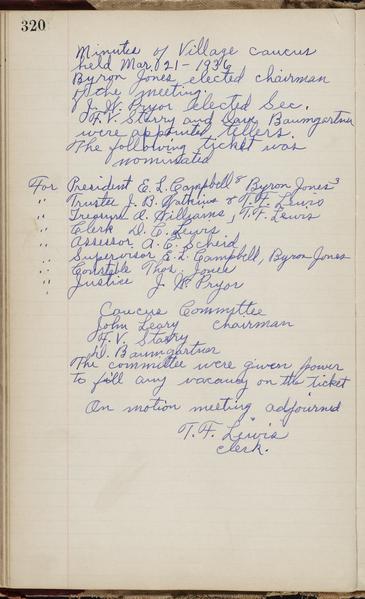 320
Minutes of Village caucus
held Mar. 21 - 1936
Byron Jones elected chairman
of the meeting.
J. W. Pryor elected Sec.
F. V. Starry and Baumgartner
were appointed tellers.
The following ticket was
nominated
For President E. L. Campbell 8 Byron Jones 3
" Trustee J. B. Watkins & T. F. Lewis
" Treasurer A. Williams, T. F. Lewis
" Clerk D. C. Lewis
" Assessor A. C. Scheid
" Supervisor E. L. Campbell, Byron Jones
" Constble Thos. Jones
" Justice J. W. Pryor
Caucus Committee
John Leary chairman
F. V. Starry
D. Baumgartner
The committee were given power
to fill any vacancy on the ticket
On motion meeting adjourned
T. F. Lewis
Clerk.